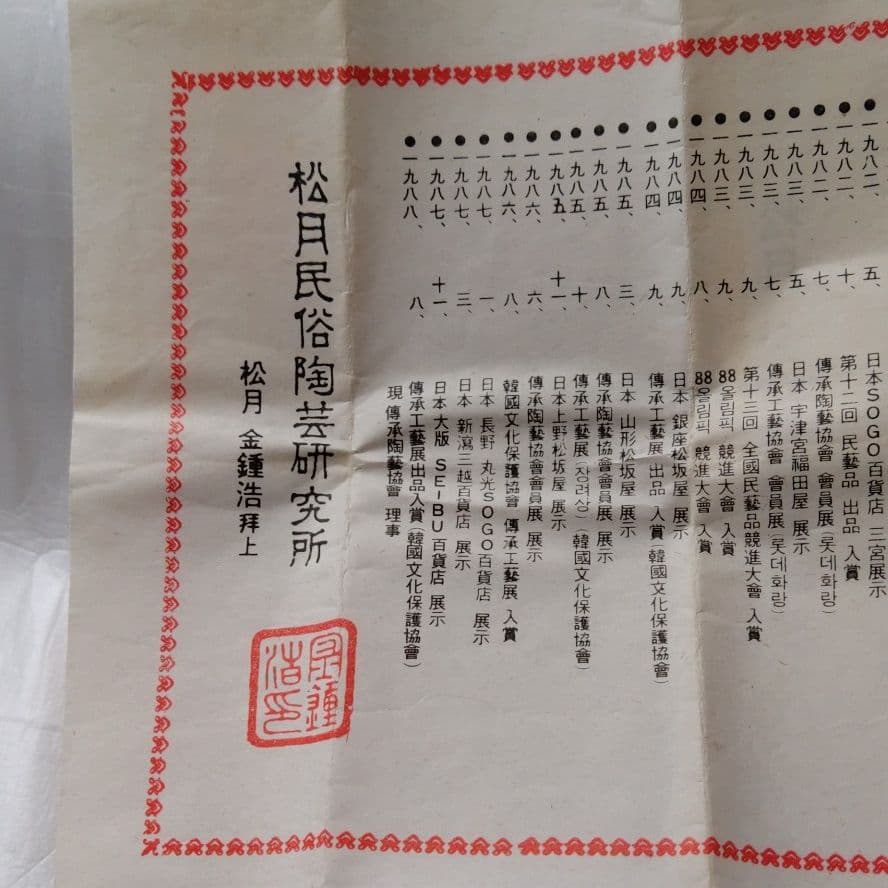 ●一九八二、 五、 日本SOGO百貨店 三宮展示
●一九八二、 十、 第十二回 民藝品 出品 入賞
●一九八二、 七、 傳承陶藝協會 會員展(롯데화랑)
●一九八三、 五、 日本 宇津宮福田屋 展示
●一九八三、 七、 傳承工藝協會 會員展(롯데화랑)
●一九八三、 九、 第十三回 全國民藝品競進大會 入賞
●一九八三、 九、 88올림픽 競進大會 入賞
●一九八四、 八、 88올림픽 競進大會 入賞
●一九八四、 九、 日本 銀座松坂屋 展示
●一九八四、 九、 傳承工藝展 出品 入賞(韓國文化保護協會)
●一九八五、 三、 日本 山形松坂屋 展示
●一九八五、 八、 傳承陶藝協會會員展 展示
●一九八五、 十、 傳承工藝展(장려상)(韓國文化保護協會)
●一九八五、 十一、 日本上野松坂屋 展示
●一九八六、 六、 傳承陶藝協會會員展 展示
●一九八六、 八、 韓國文化保護協會 傳承工藝展 入賞
●一九八七、 一、 日本 長野 丸光SOGO百貨店 展示
●一九八七、 三、 日本 新瀉三越百貨店 展示
●一九八七、 十一、 日本 大版 SEIBU百貨店 展示
●一九八八、 八、 傳承工藝展出品入賞(韓國文化保護協會)
現 傳承陶藝協會 理事
松月民俗陶芸研究所
松月 金鍾浩 拜上
金鍾浩印